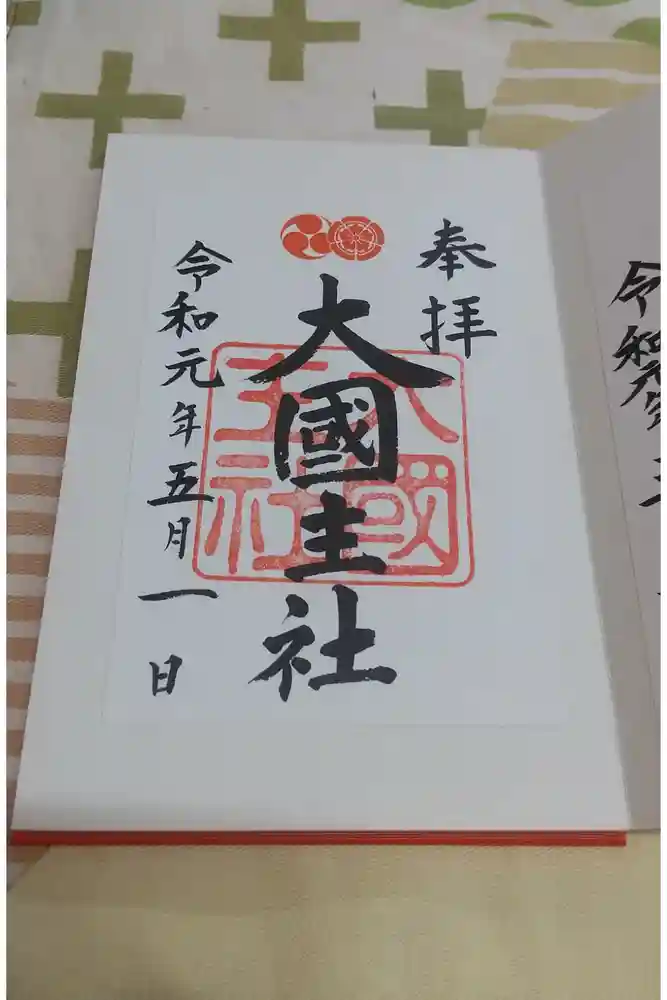 奉拝
大國主社
大國
主社
令和元年五月一日
令和元年